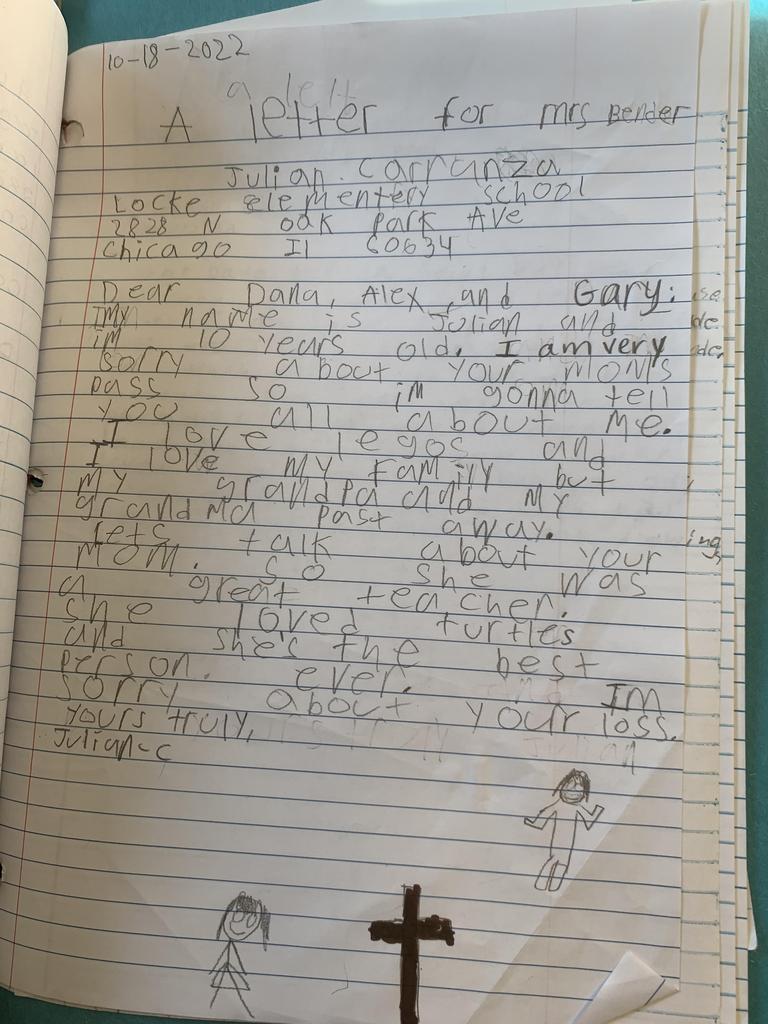 10-18-2022
a lett
A letter for mrs Bender
Julian. carranza
Locke elementery school
2828 N oak park AVe
chicago Il 60634
Dear Dana, Alex, and Gary:
My name is Julian and
im 10 years old. I am very
sorry about your moms
pass so im gonna tell
you all about me.
I love legos and
I love my family but
my grandpa and my
grandma past away.
lets talk about your
mom. so she was
a great teacher.
she loved turtles
and she's the best
person. ever. Im
sorry about your loss.
yours truly,
Julian-c